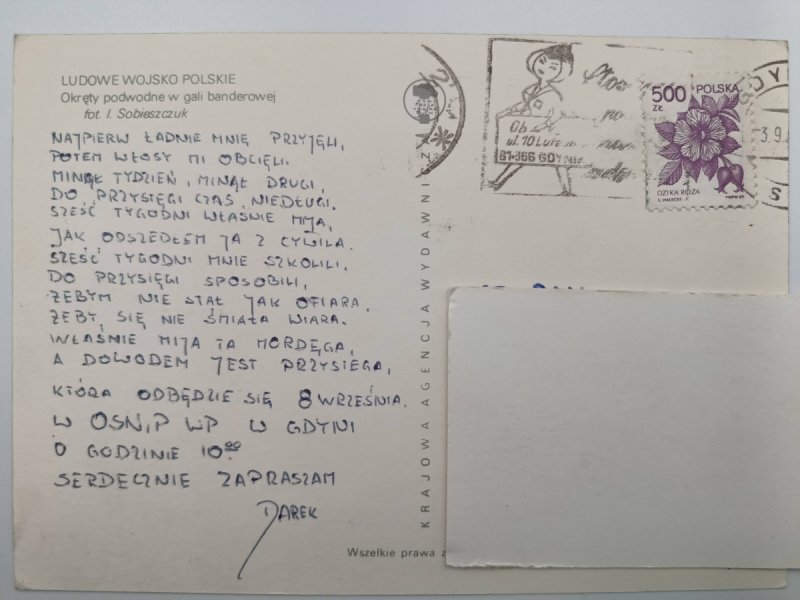 LUDOWE WOJSKO POLSKIE
Okręty podwodne w gali banderowej
fot. I. Sobieszczuk
NAJPIERW ŁADNIE MNIE PRZYJĘLI,
POTEM WŁOSY MI OBCIĘLI.
MINĄŁ TYDZIEŃ, MINĄŁ DRUGI,
DO PRZYSIĘGI CZAS NIEDŁUGI.
SZEŚĆ TYGODNI WŁAŚNIE MIJA,
JAK ODSZEDŁEM JA Z CYWILA.
SZEŚĆ TYGODNI MNIE SZKOLILI,
DO PRZYSIĘGI SPOSOBILI,
ŻEBYM NIE STAŁ JAK OFIARA,
ŻEBY SIĘ NIE ŚMIAŁA WIARA.
WŁAŚNIE MIJA TA MORDĘGA,
A DOWODEM JEST PRZYSIEGA,
KTÓRA ODBĘDZIE SIĘ 8 WRZEŚNIA.
W OSN,P WP W GDYNI
O GODZINIE 10.00
SERDECZNIE ZAPRASZAM
DAREK
KRAJOWA AGENCJA WYDAWNICZA
Wszelkie prawa
ul. 10 Lutego
81-366 GDYNIA
500 ZŁ
POLSKA
DZIKA RÓŻA